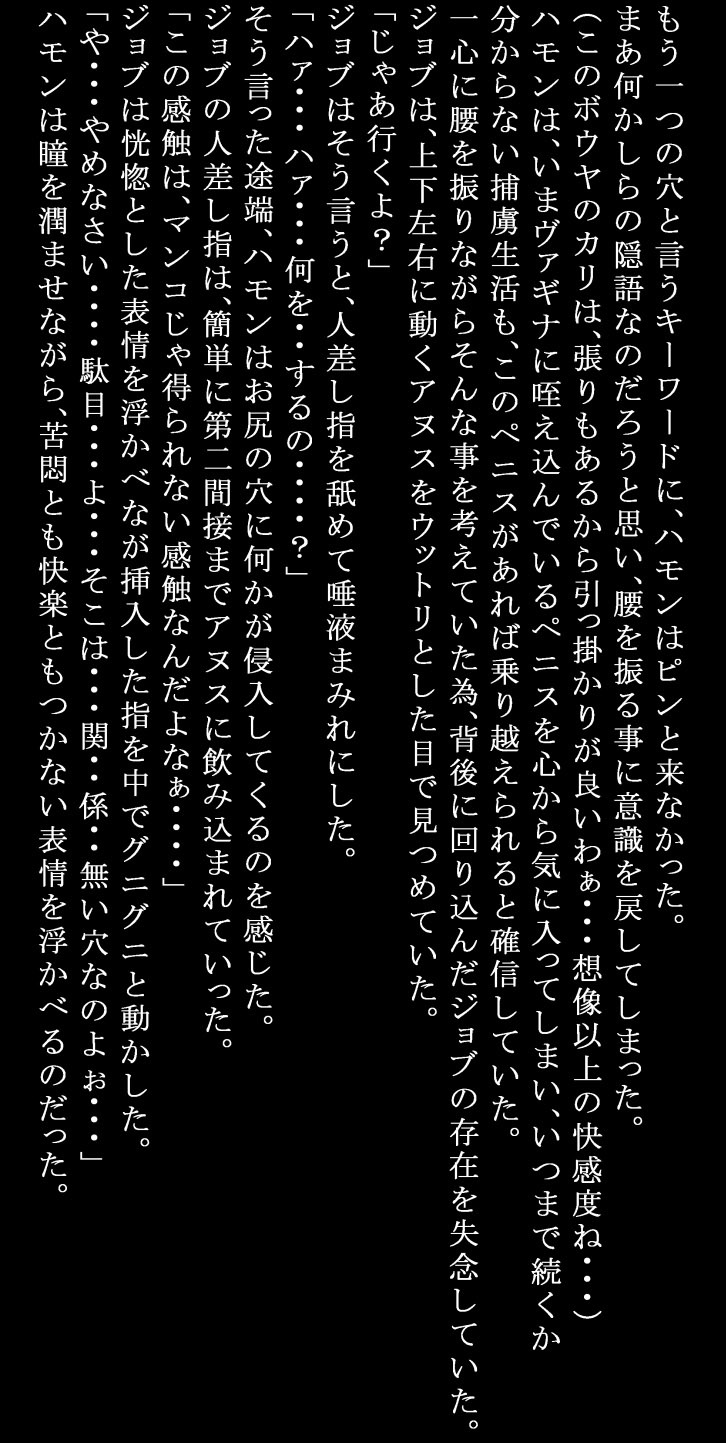 もう一つの穴と言うキーワードに、ハモンはピンと来なかった。
まあ何かしらの隠語なのだろうと思い、腰を振る事に意識を戻してしまった。
（このボウヤのカリは、張りもあるから引っ掛かりが良いわぁ・・・想像以上の快感度ね・・・）
ハモンは、いまヴァギナに咥え込んでいるペニスを心から気に入ってしまい、いつまで続くか
分からない捕虜生活も、このペニスがあれば乗り越えられると確信していた。
一心に腰を振りながらそんな事を考えていた為、背後に回り込んだジョブの存在を失念していた。
ジョブは、上下左右に動くアヌスをウットリとした目で見つめていた。
「じゃあ行くよ？」
ジョブはそう言うと、人差し指を舐めて唾液まみれにした。
「ハァ・・・ハァ・・・何を・・するの・・・・？」
そう言った途端、ハモンはお尻の穴に何かが侵入してくるのを感じた。
ジョブの人差し指は、簡単に第二間接までアヌスに飲み込まれていった。
「この感触は、マンコじゃ得られない感触なんだよなぁ・・・・」
ジョブは恍惚とした表情を浮かべなが挿入した指を中でグニグニと動かした。
「や・・・やめなさい・・・・駄目・・・よ・・・そこは・・・関・・係・・無い穴なのよぉ・・・」
ハモンは瞳を潤ませながら、苦悶とも快楽ともつかない表情を浮かべるのだった。